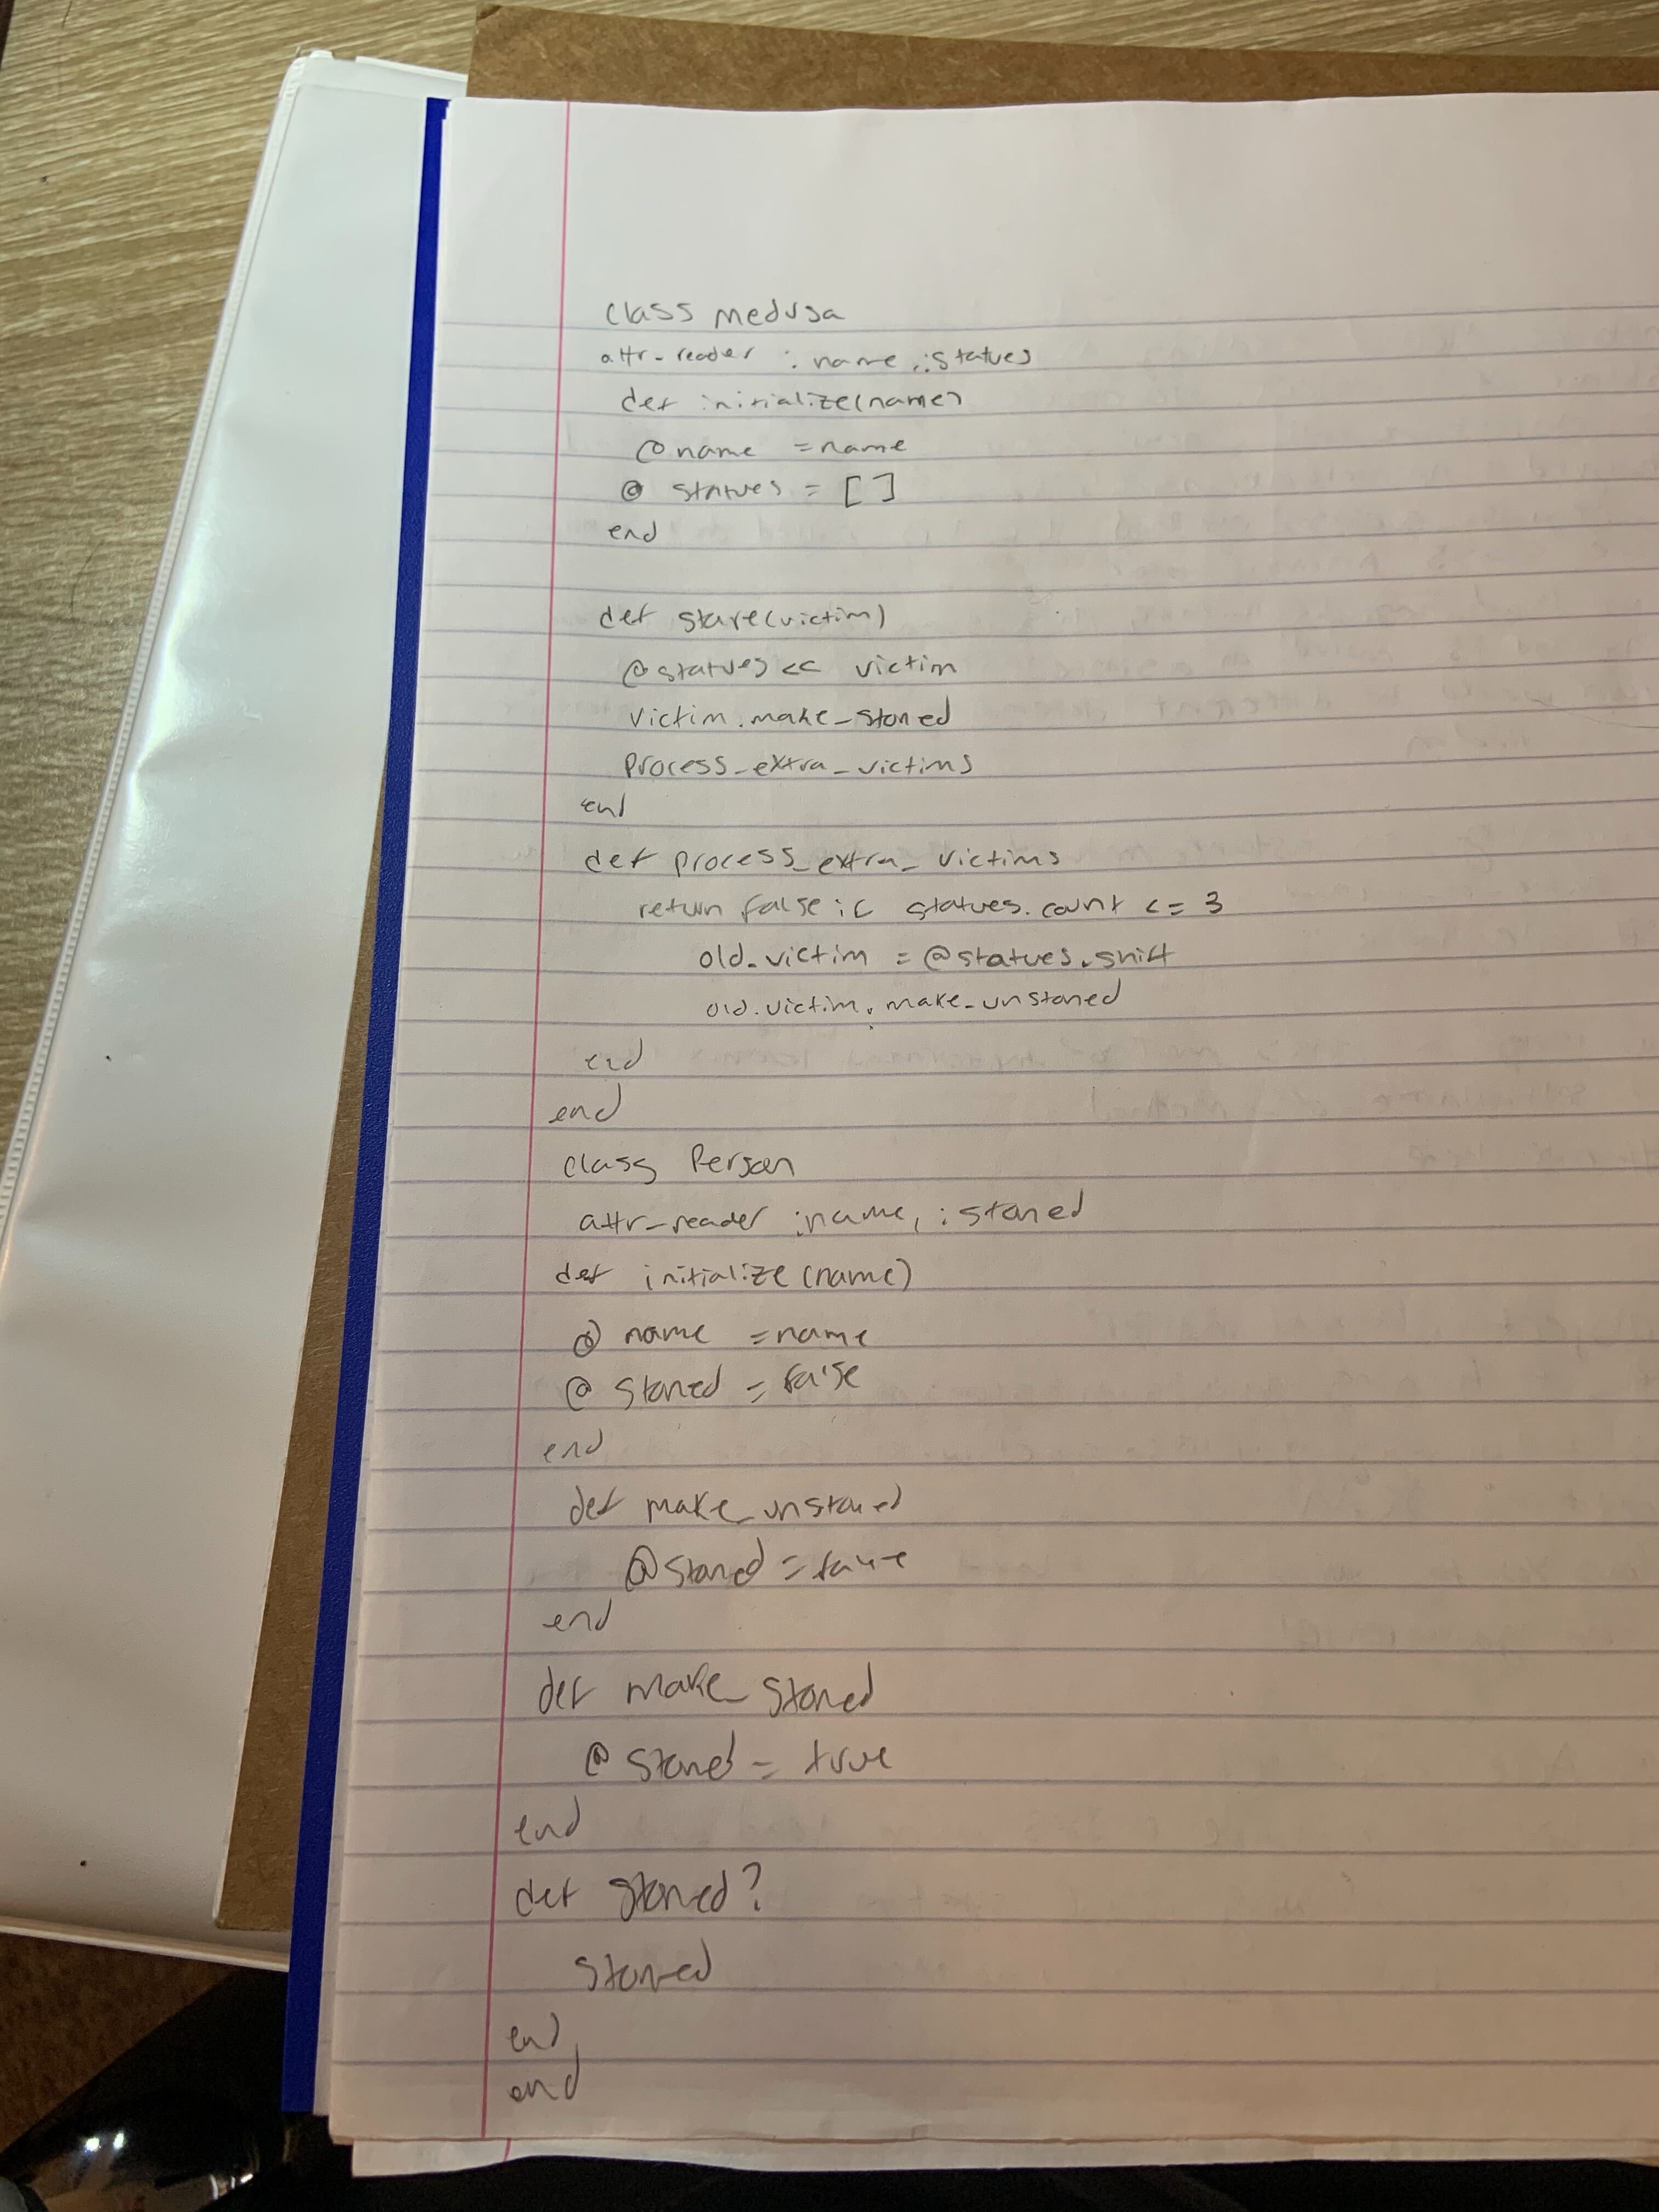 class medusa
attr_reader :name, :statues
def initialize(name)
@name = name
@statues = []
end
def stare(victim)
@statues << victim
victim.make_stoned
process_extra_victims
end
def process_extra_victims
return false if statues.count <= 3
old_victim = @statues.shift
old.victim.make_unstoned
end
end
class Person
attr_reader :name, :stoned
def initialize(name)
@name = name
@stoned = false
end
def make_unstoned
@stoned = false
end
def make_stoned
@stoned = true
end
def stoned?
stoned
end
end